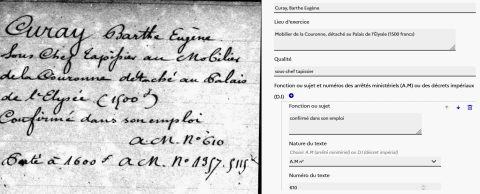 Curay Barthe Eugène
Sous Chef tapissier au Mobilier
de la Couronne détaché au Palais
de l'Elysée (1500 f)
Confirmé dans son emploi
A.M. N° 610
Porté à 1600 f A.M. N° 1357. 5115bre
Curay, Barthe Eugène
Lieu d'exercice
Mobilier de la Couronne, détaché au Palais de l'Elysée (1500 francs)
Qualité
sous-chef tapissier
Fonction ou sujet et numéros des arrêtés ministériels (A.M) ou des décrets impériaux
(D.I)
Fonction ou sujet
confirmé dans son emploi
Nature du texte
Choisir A.M (arrêté ministériel) ou D.I (décret impérial)
A.M n°
Numéro du texte
610